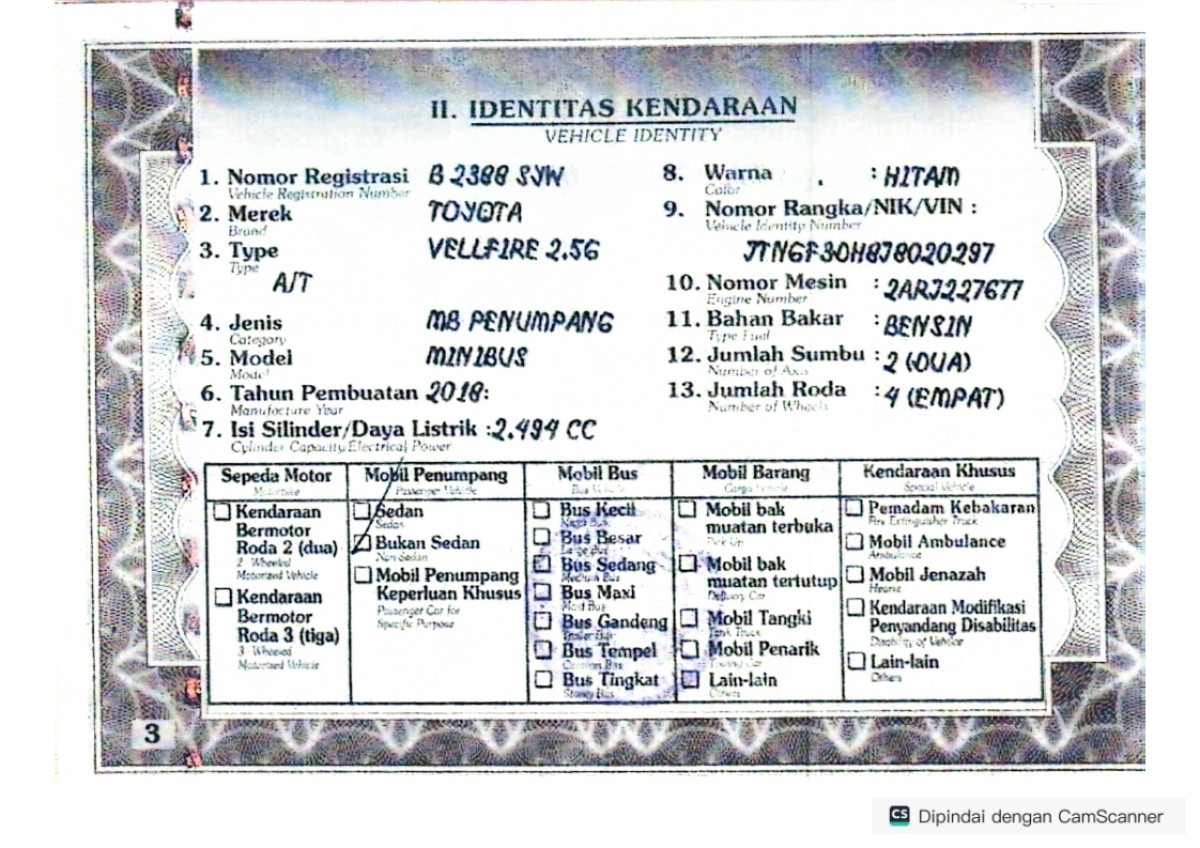 II. IDENTITAS KENDARAAN
VEHICLE IDENTITY
1. Nomor Registrasi B 2388 SJW
Vehicle Registration Number
2. Merek TOYOTA
Brand
3. Type VELLFIRE 2.5G
Type
A/T
4. Jenis MB PENUMPANG
Category
5. Model MINIBUS
Model
6. Tahun Pembuatan 2018:
Manufacture Year
7. Isi Silinder/Daya Listrik :2.494 CC
Cylinder Capacity/Electrical Power
8. Warna : HITAM
Color
9. Nomor Rangka/NIK/VIN :
Vehicle Identity Number
JTNGF30H8J8020297
10. Nomor Mesin : 2ARJ227677
Engine Number
11. Bahan Bakar : BENSIN
Type Fuel
12. Jumlah Sumbu : 2 (DUA)
Number of Axis
13. Jumlah Roda : 4 (EMPAT)
Number of Wheels
Sepeda Motor
Motorbike
Kendaraan
Bermotor
Roda 2 (dua)
2 - Wheeled
Motorized Vehicle
Kendaraan
Bermotor
Roda 3 (tiga)
3 - Wheeled
Motorized Vehicle
Mobil Penumpang
Passenger Vehicle
Sedan
Sedan
Bukan Sedan
Non Sedan
Mobil Penumpang
Keperluan Khusus
Passenger Car for
Specific Purpose
Mobil Bus
Bus Vehicle
Bus Kecil
Bus Besar
Large Bus
Bus Sedang
Medium Bus
Bus Maxi
Maxi Bus
Bus Gandeng
Trailer Bus
Bus Tempel
Bus Tingkat
Mobil Barang
Cargo Vehicle
Mobil bak
muatan terbuka
Pick Up
Mobil bak
muatan tertutup
Delivery Car
Mobil Tangki
Tank Truck
Mobil Penarik
Towing Car
Lain-lain
Others
Kendaraan Khusus
Special Vehicle
Pemadam Kebakaran
Fire Extinguisher Truck
Mobil Ambulance
Ambulance
Mobil Jenazah
Hearse
Kendaraan Modifikasi
Penyandang Disabilitas
Disability of Vehicle
Lain-lain
Others
3
CS Dipindai dengan CamScanner